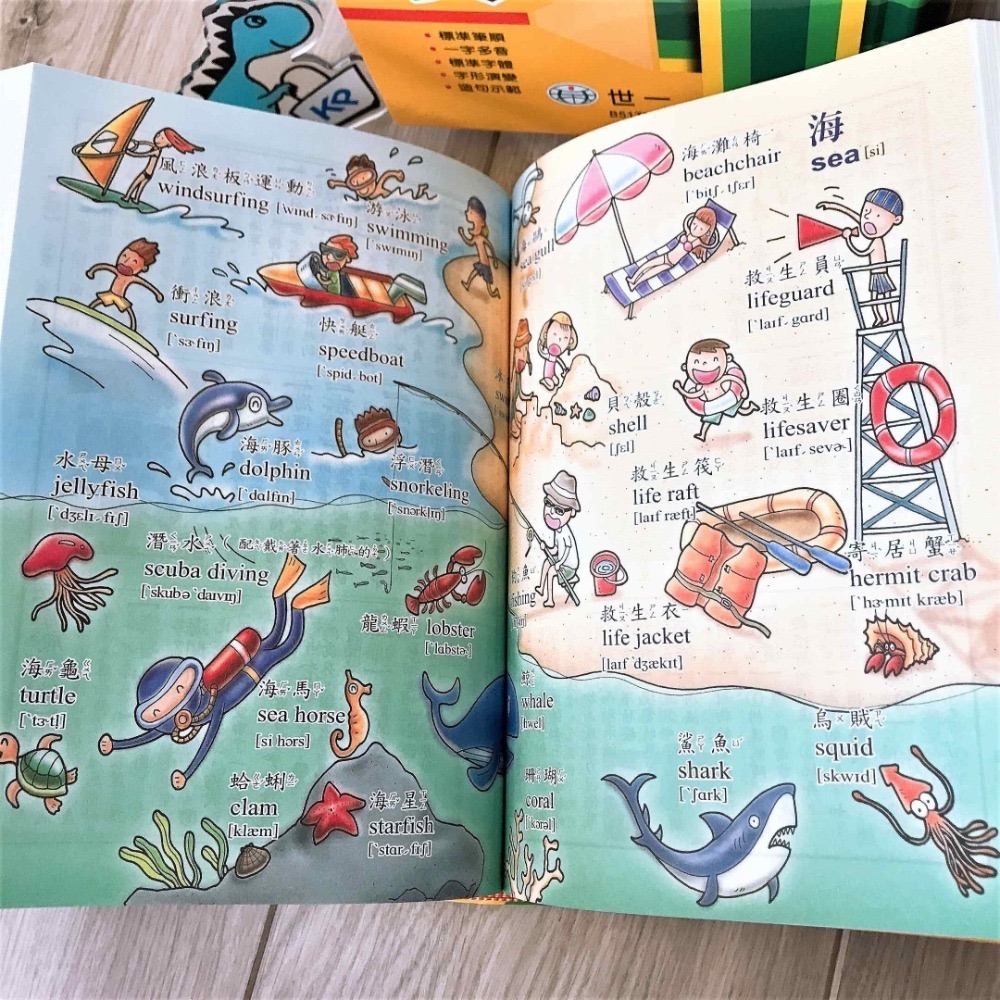 標準筆順
一字多音
標準字體
字形演變
造句示範
世一
KP
風浪板運動
windsurfing [ˋwɪnd͵sɝfɪŋ]
游泳
swimming
[ˋswɪmɪŋ]
衝浪
surfing
[ˋsɝfɪŋ]
快艇
speedboat
[ˋspid͵bot]
海豚
dolphin
[ˋdɑlfɪn]
浮潛
snorkeling
[ˋsnɔrklɪŋ]
水母
jellyfish
[ˋdʒɛlɪ͵fɪʃ]
潛水(配戴著水肺的)
scuba diving
[ˋskubə ˋdaɪvɪŋ]
龍蝦 lobster
[ˋlɑbstɚ]
海龜
turtle
[ˋtɝtl]
海馬
sea horse
[si hɔrs]
蛤蜊
clam
[klæm]
海星
starfish
[ˋstɑr͵fɪʃ]
海
sea [si]
海灘椅
beachchair
[ˋbitʃ͵tʃɛr]
海鷗
sea gull
救生員
lifeguard
[ˋlaɪf͵gɑrd]
貝殼
shell
[ʃɛl]
救生圈
lifesaver
[ˋlaɪf͵sevɚ]
救生筏
life raft
[laɪf ræft]
釣魚
fishing
救生衣
life jacket
[laɪf ˋdʒækɪt]
寄居蟹
hermit crab
[ˋhɝmɪt kræb]
鯨
whale
[hwel]
鯊魚
shark
[ˋʃɑrk]
烏賊
squid
[skwɪd]
珊瑚
coral
[ˋkɔrəl]